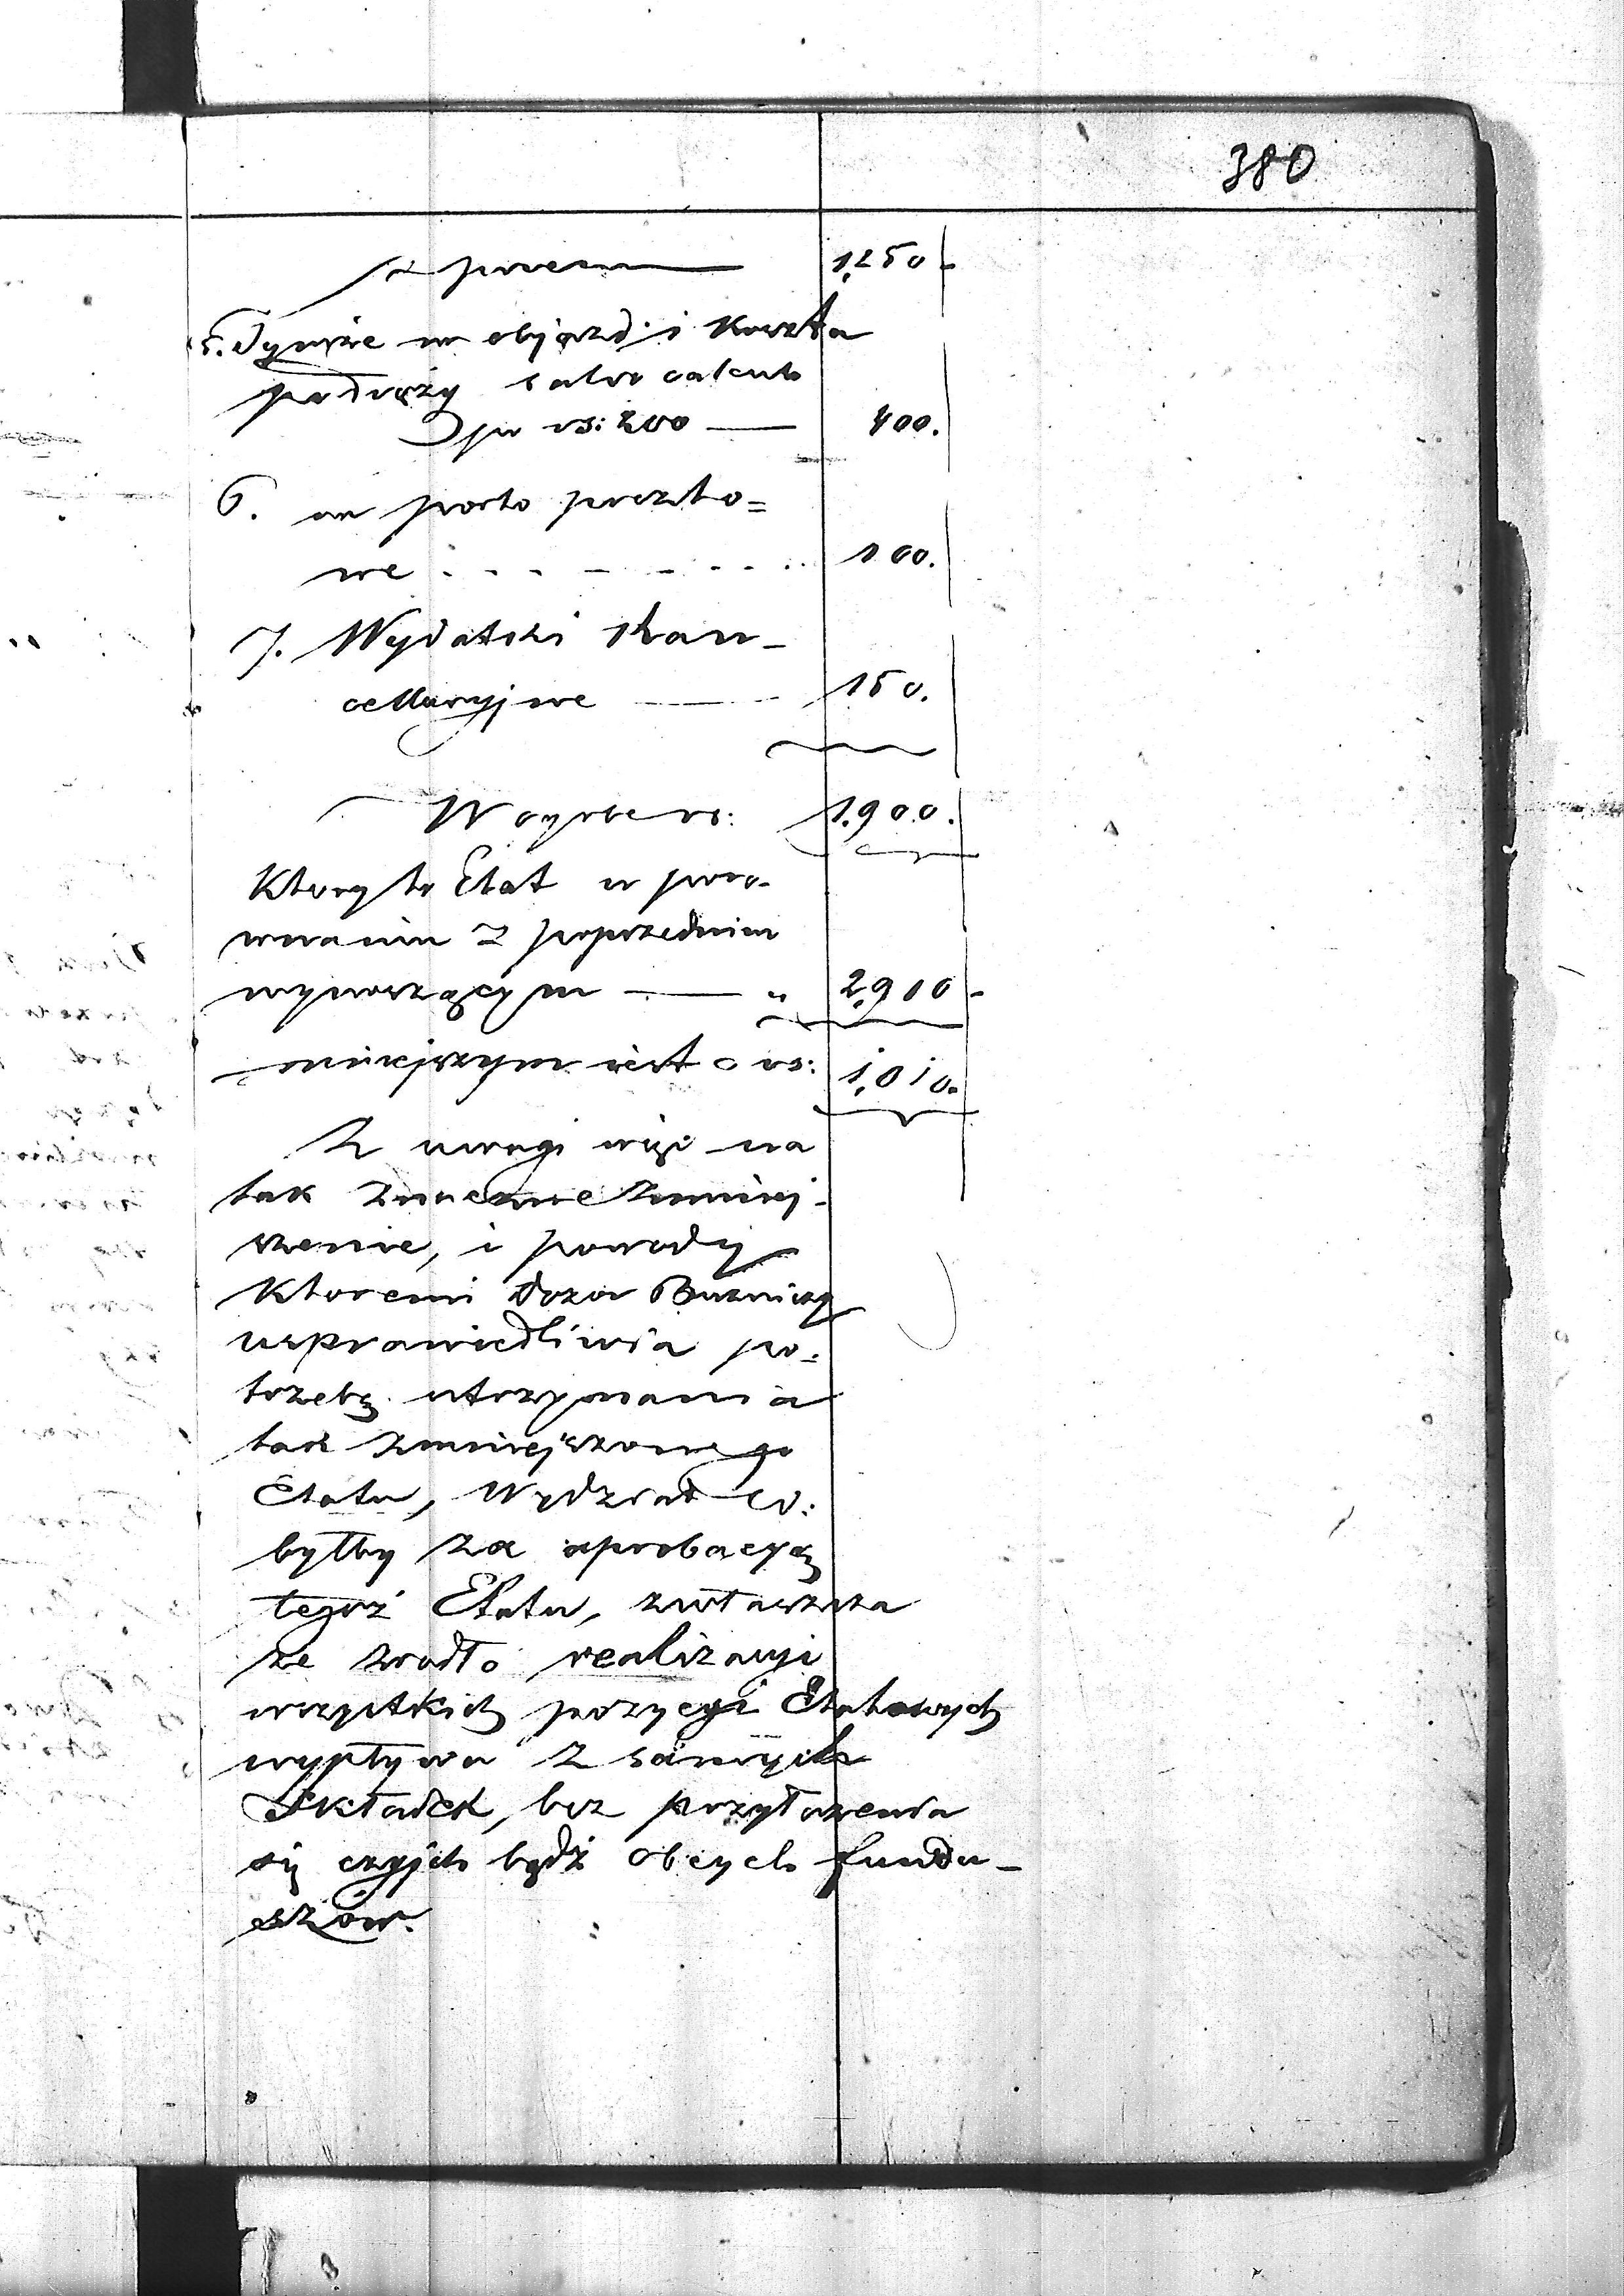 380
z przen 1,250.
5. Tymże na objazd i koszta
podróży salvo calculo
po rs: 200 — 400.
6. na porto poczto=
we . . . . . . . 100.
7. Wydatki Kan-
cellaryjne — 150.
W ogóle rs: 1,900.
Który to Etat w poró-
wnaniu z poprzednim
wynoszącym — " 2,910.
mniejszym jest o rs: 1,010.
Z uwagi więc na
tak znaczne zmniej-
szenie, i powody
któremi Dozór Bużniczy
usprawiedliwia po-
trzebę utrzymania
tak zmniejszonego
Etatu, Wydział
byłby za aprobacyą
tegoż Etatu, zwłaszcza
że zrodło realizacyi
wszystkich pozycyi Etatowych
wypływa z samych
Składek, bez przyłożenia
się czyich bądź obcych fundu-
szów.